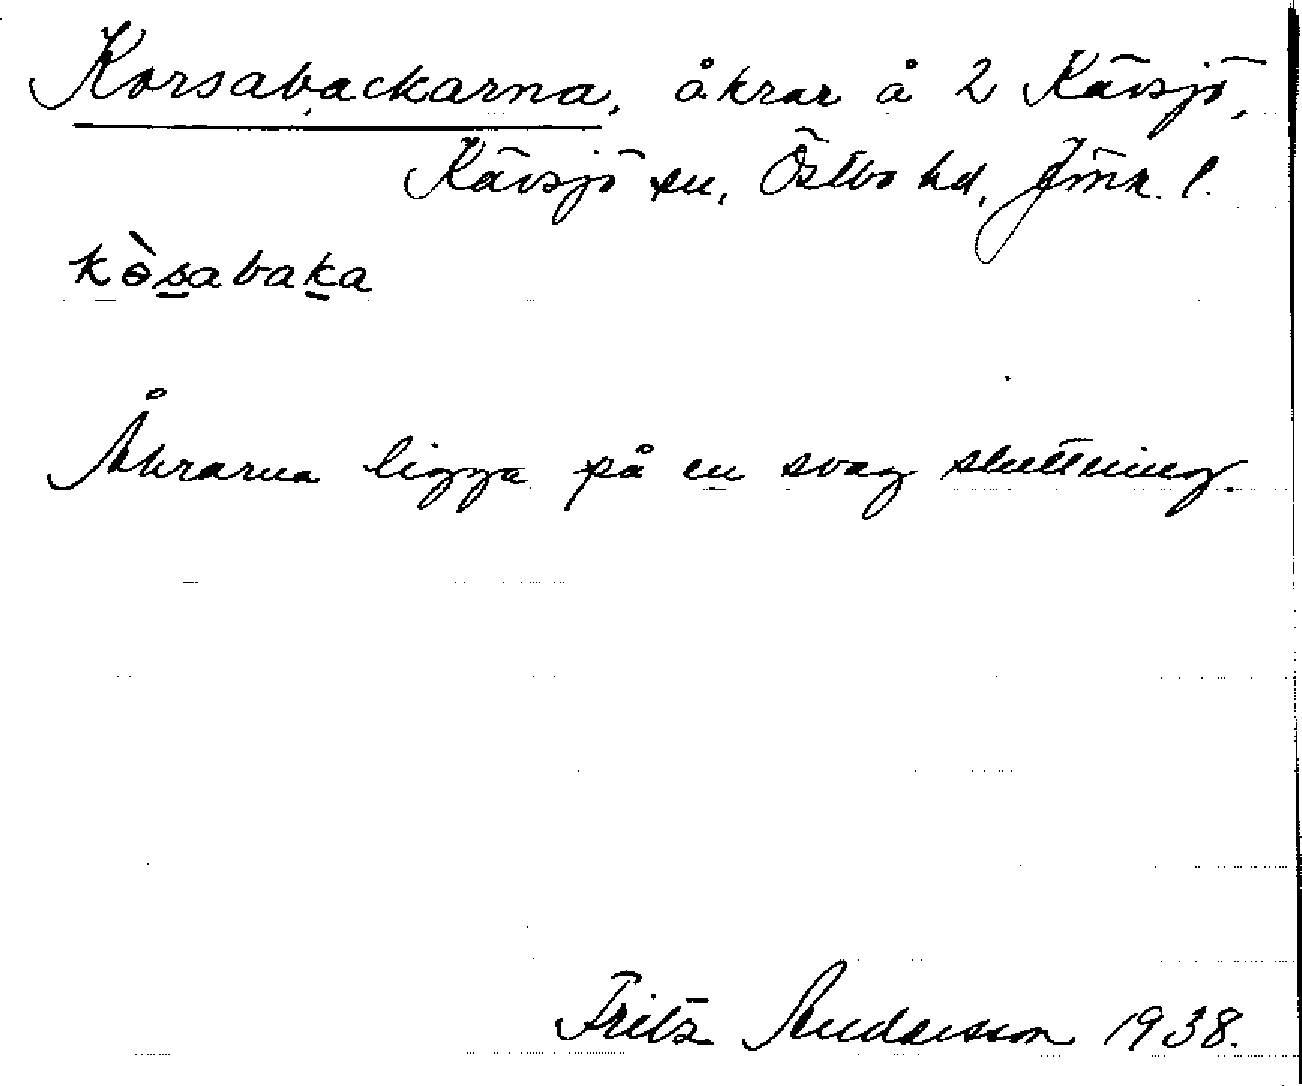 Korsabackarna, åkrar å 2 Kävsjö,
Kävsjö sn, Östbo hd, Jönk. l.
kòsabaka
Åkrarna ligga på en svag sluttning.
Fritz Andersson 1938.